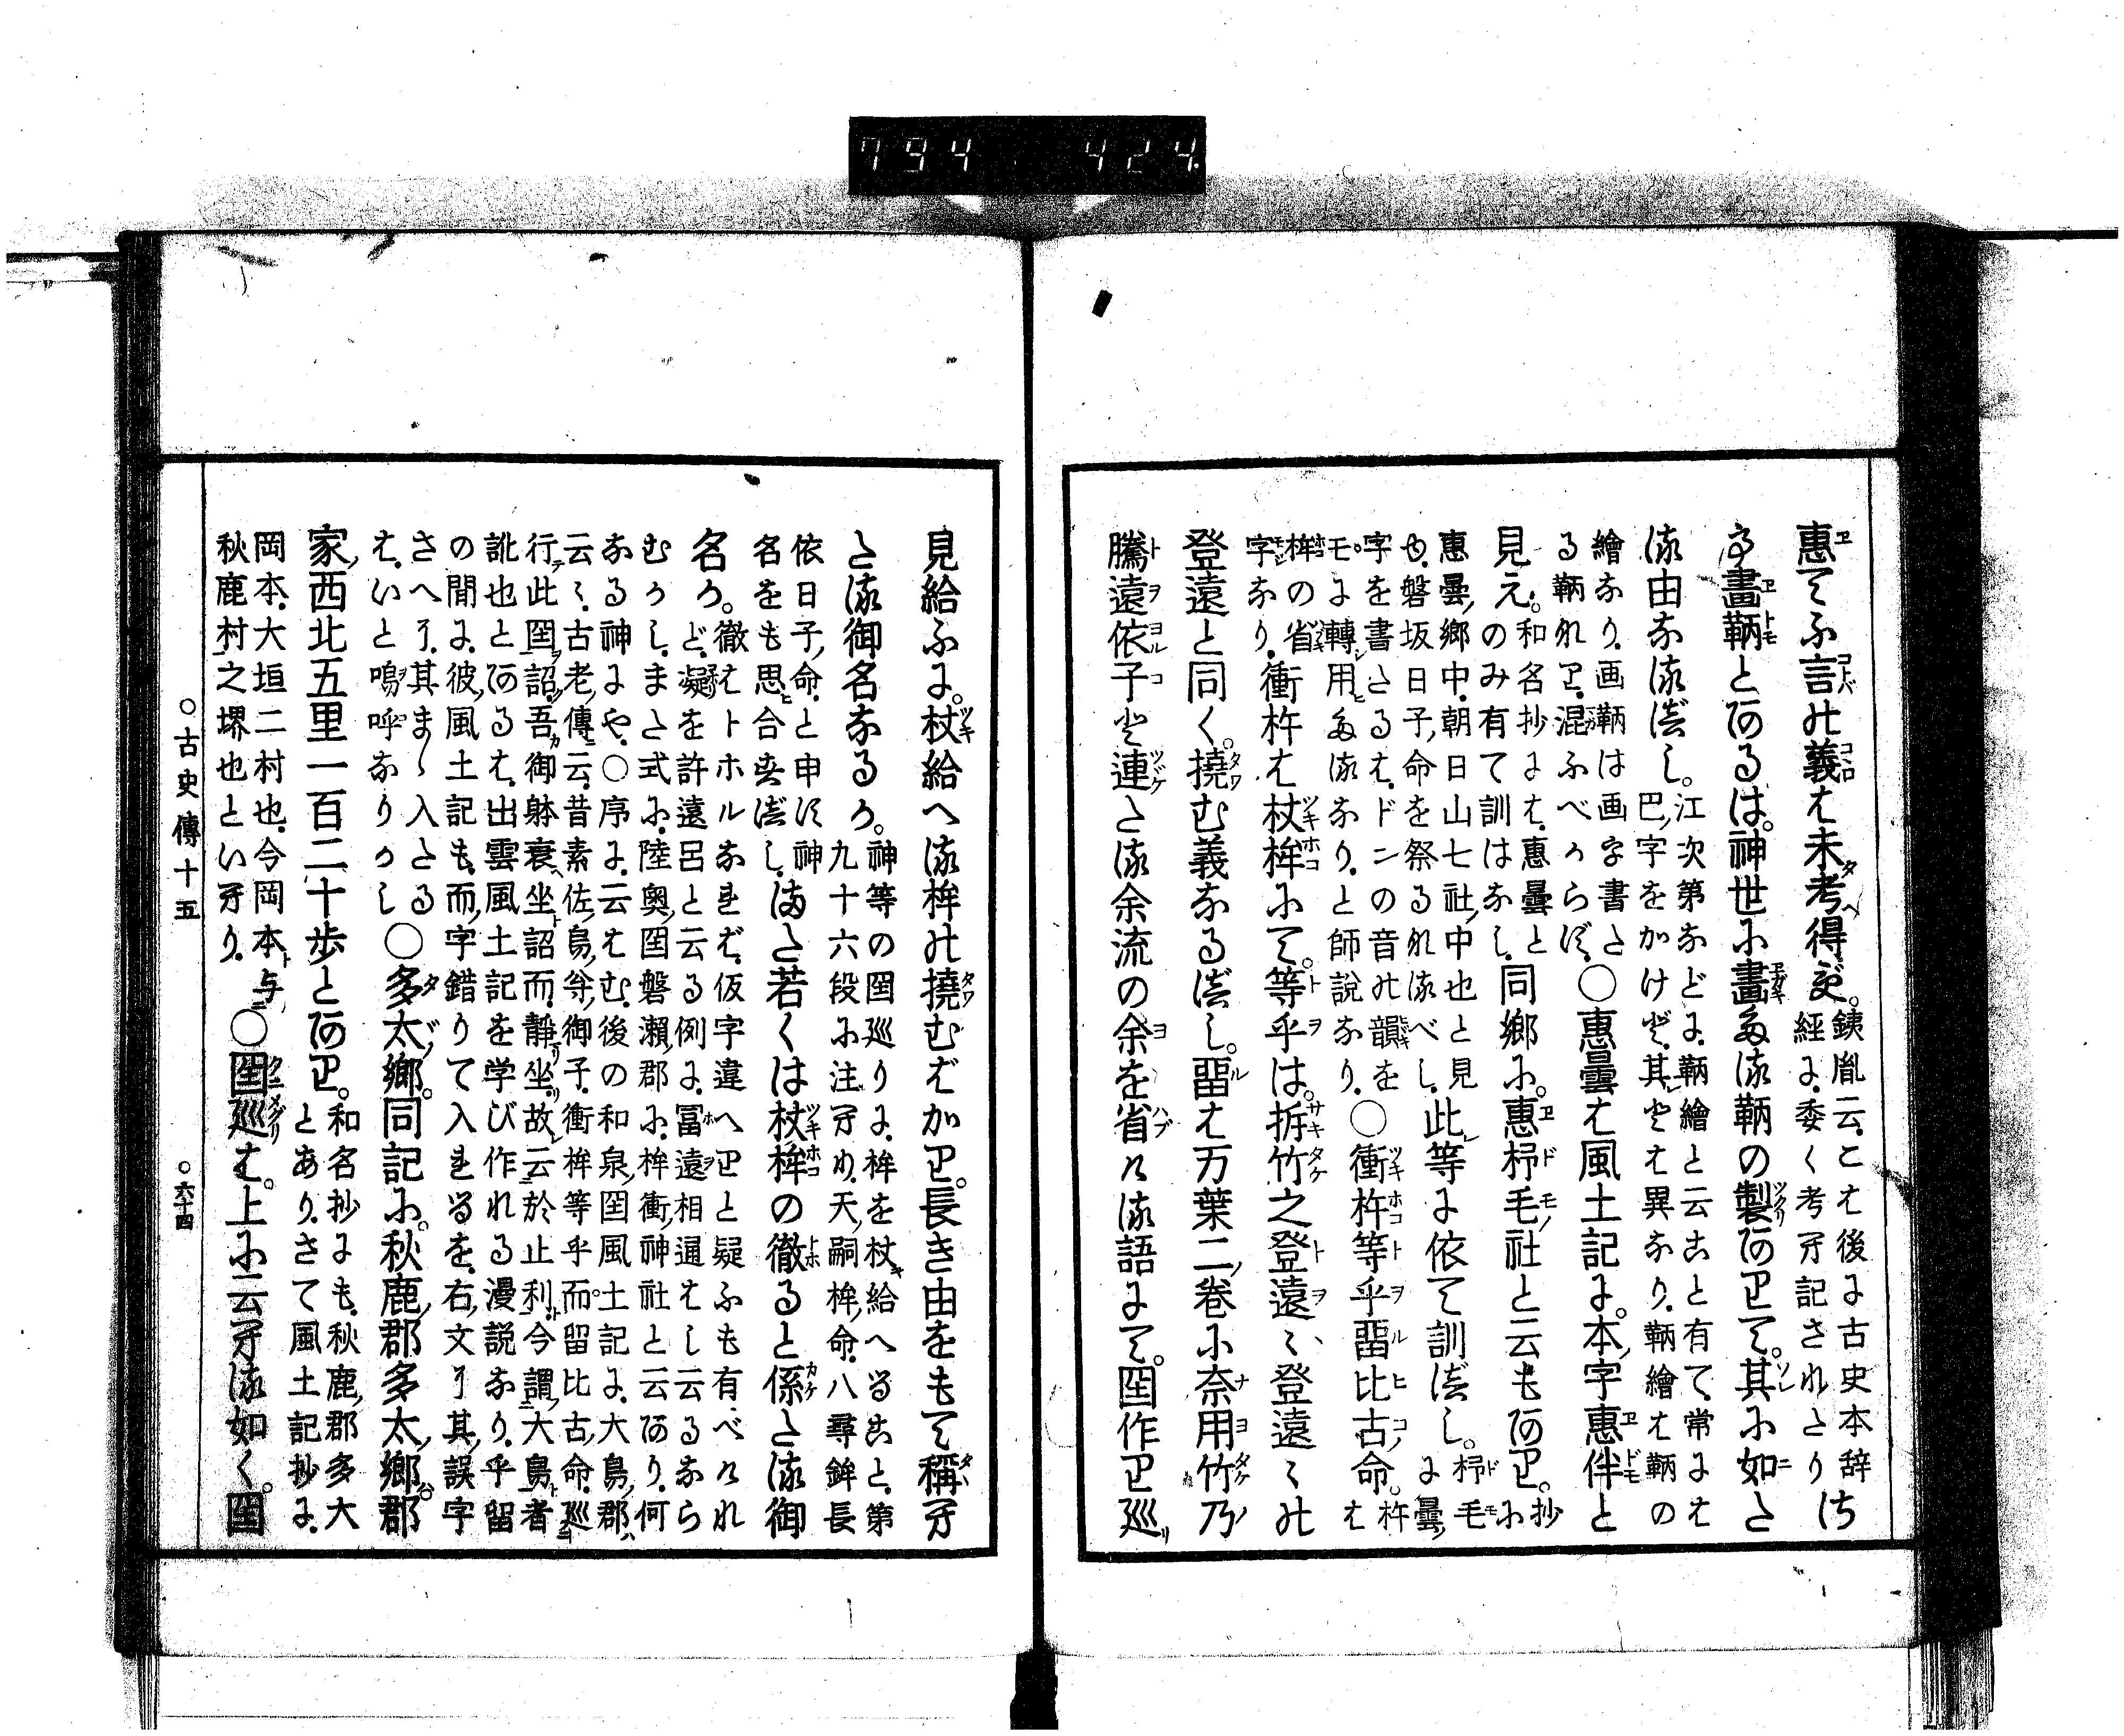 794 424
惠てふ言の義は未考得ず。
銕胤云こは後に古史本辞
経に委く考へ記されたり
さて畫鞆とあるは。神世に畫たる鞆の製ありて。其に如た
る由なるべし。
江次第などに鞆繪と云こと有て常には
巴字をかけど其とは異なり鞆繪は鞆の
繪なり画鞆は画る書た
る鞆なれば混ふべからず
〇惠曇は風土記に。本字惠伴と
見え。
和名抄には惠曇と
のみ有て訓はなし
同郷に。惠杼毛社と云もあり。
抄に
惠曇郷中朝日山七社中也と見
也磐坂日子命を祭るなるべし
此等に依て訓べし。
杼毛
に曇
字を書たるはドンの音の韻を
モに轉用たるなりと師説なり
〇衝杵等乎畱比古命。
杵
は
桙の省
字なり
衝杵は杖桙にて。等乎は。拆竹之登遠々登遠々の
登遠と同く。撓む義なるべし。畱は万葉二卷に奈用竹乃
騰遠依子と連たる余流の余を省ける語にて。国作り巡
見給ふに。杖給へる桙の撓むばかり。長き由をもて稱へ
たる御名なるか。
神等の国巡りに桙を杖給へること第
九十六段に注へり天嗣桙命八尋鉾長
依日子命と申す神
名をも思合すべし
また若くは杖桙の徹ると係たる御
名か。
徹はトホルなれば仮字違へりと疑ふも有べけれ
ど凝を許遠呂と云る例に冨遠相通はし云るなら
むかしまた式に陸奧国磐瀬郡に桙衝神社と云あり何
なる神にや〇序に云はむ後の和泉国風土記に大鳥郡
云々古老傳云昔素佐烏尊御子衝桙等乎而留比古命巡
行此国詔吾御躰衰坐詔而靜坐故云於止利今謂大鳥者
訛也とあるは出雲風土記を学び作れる漫説なり乎留
の間に彼風土記も而字錯りて入れるを右文に其誤字
さへに其まゝ入たる
はいと嗚呼なりかし
〇多太郷。同記に。秋鹿郡多太郷。郡
家西北五里一百二十歩とあり。
和名抄にも秋鹿郡多大
とありさて風土記抄に
岡本大垣二村也今岡本与
秋鹿村之堺也といへり
〇国巡は。上に云へる如く。国
〇古史傳十五
〇六十四